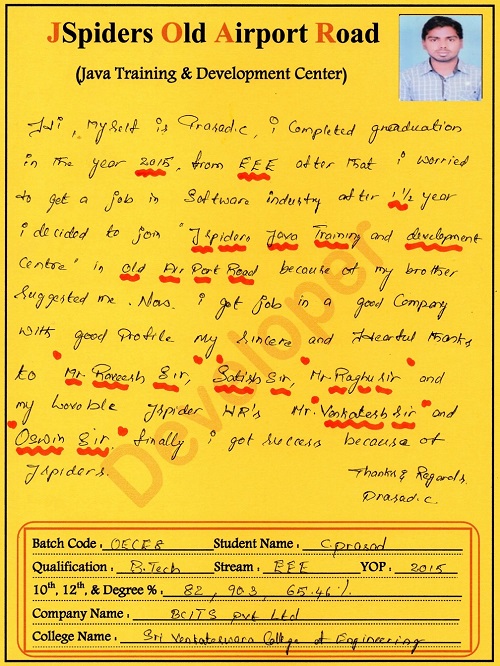 JSpiders Old Airport Road
(Java Training & Development Center)
Hi, Myself is Prasad.c, i completed graduation
in the year 2015, from EEE after that i worried
to get a job in Software industry after 1 1/2 year
i decided to join "Jspiders Java Training and development
Centre" in old Air Port Road because of my brother
Suggested me. Now i got job in a good Company
with good Profile my sincere and Hearful thanks
to "Mr. Raveesh Sir, "Satish Sir, "Mr. Raghu sir" and
my Lovoble Jspider HR's Mr. "Venkatesh Sir" and
"Oswin Sir" finally i got success because of
Jspiders.
Thanks & Regards,
Prasad.c
Developer
Batch Code : OECE8 Student Name : C prasad
Qualification : B.Tech Stream : EEE YOP : 2015
10th, 12th, & Degree % : 82, 90.3, 65.46%
Company Name : BCITS pvt Ltd
College Name : Sri Venkateswara College of Engineering